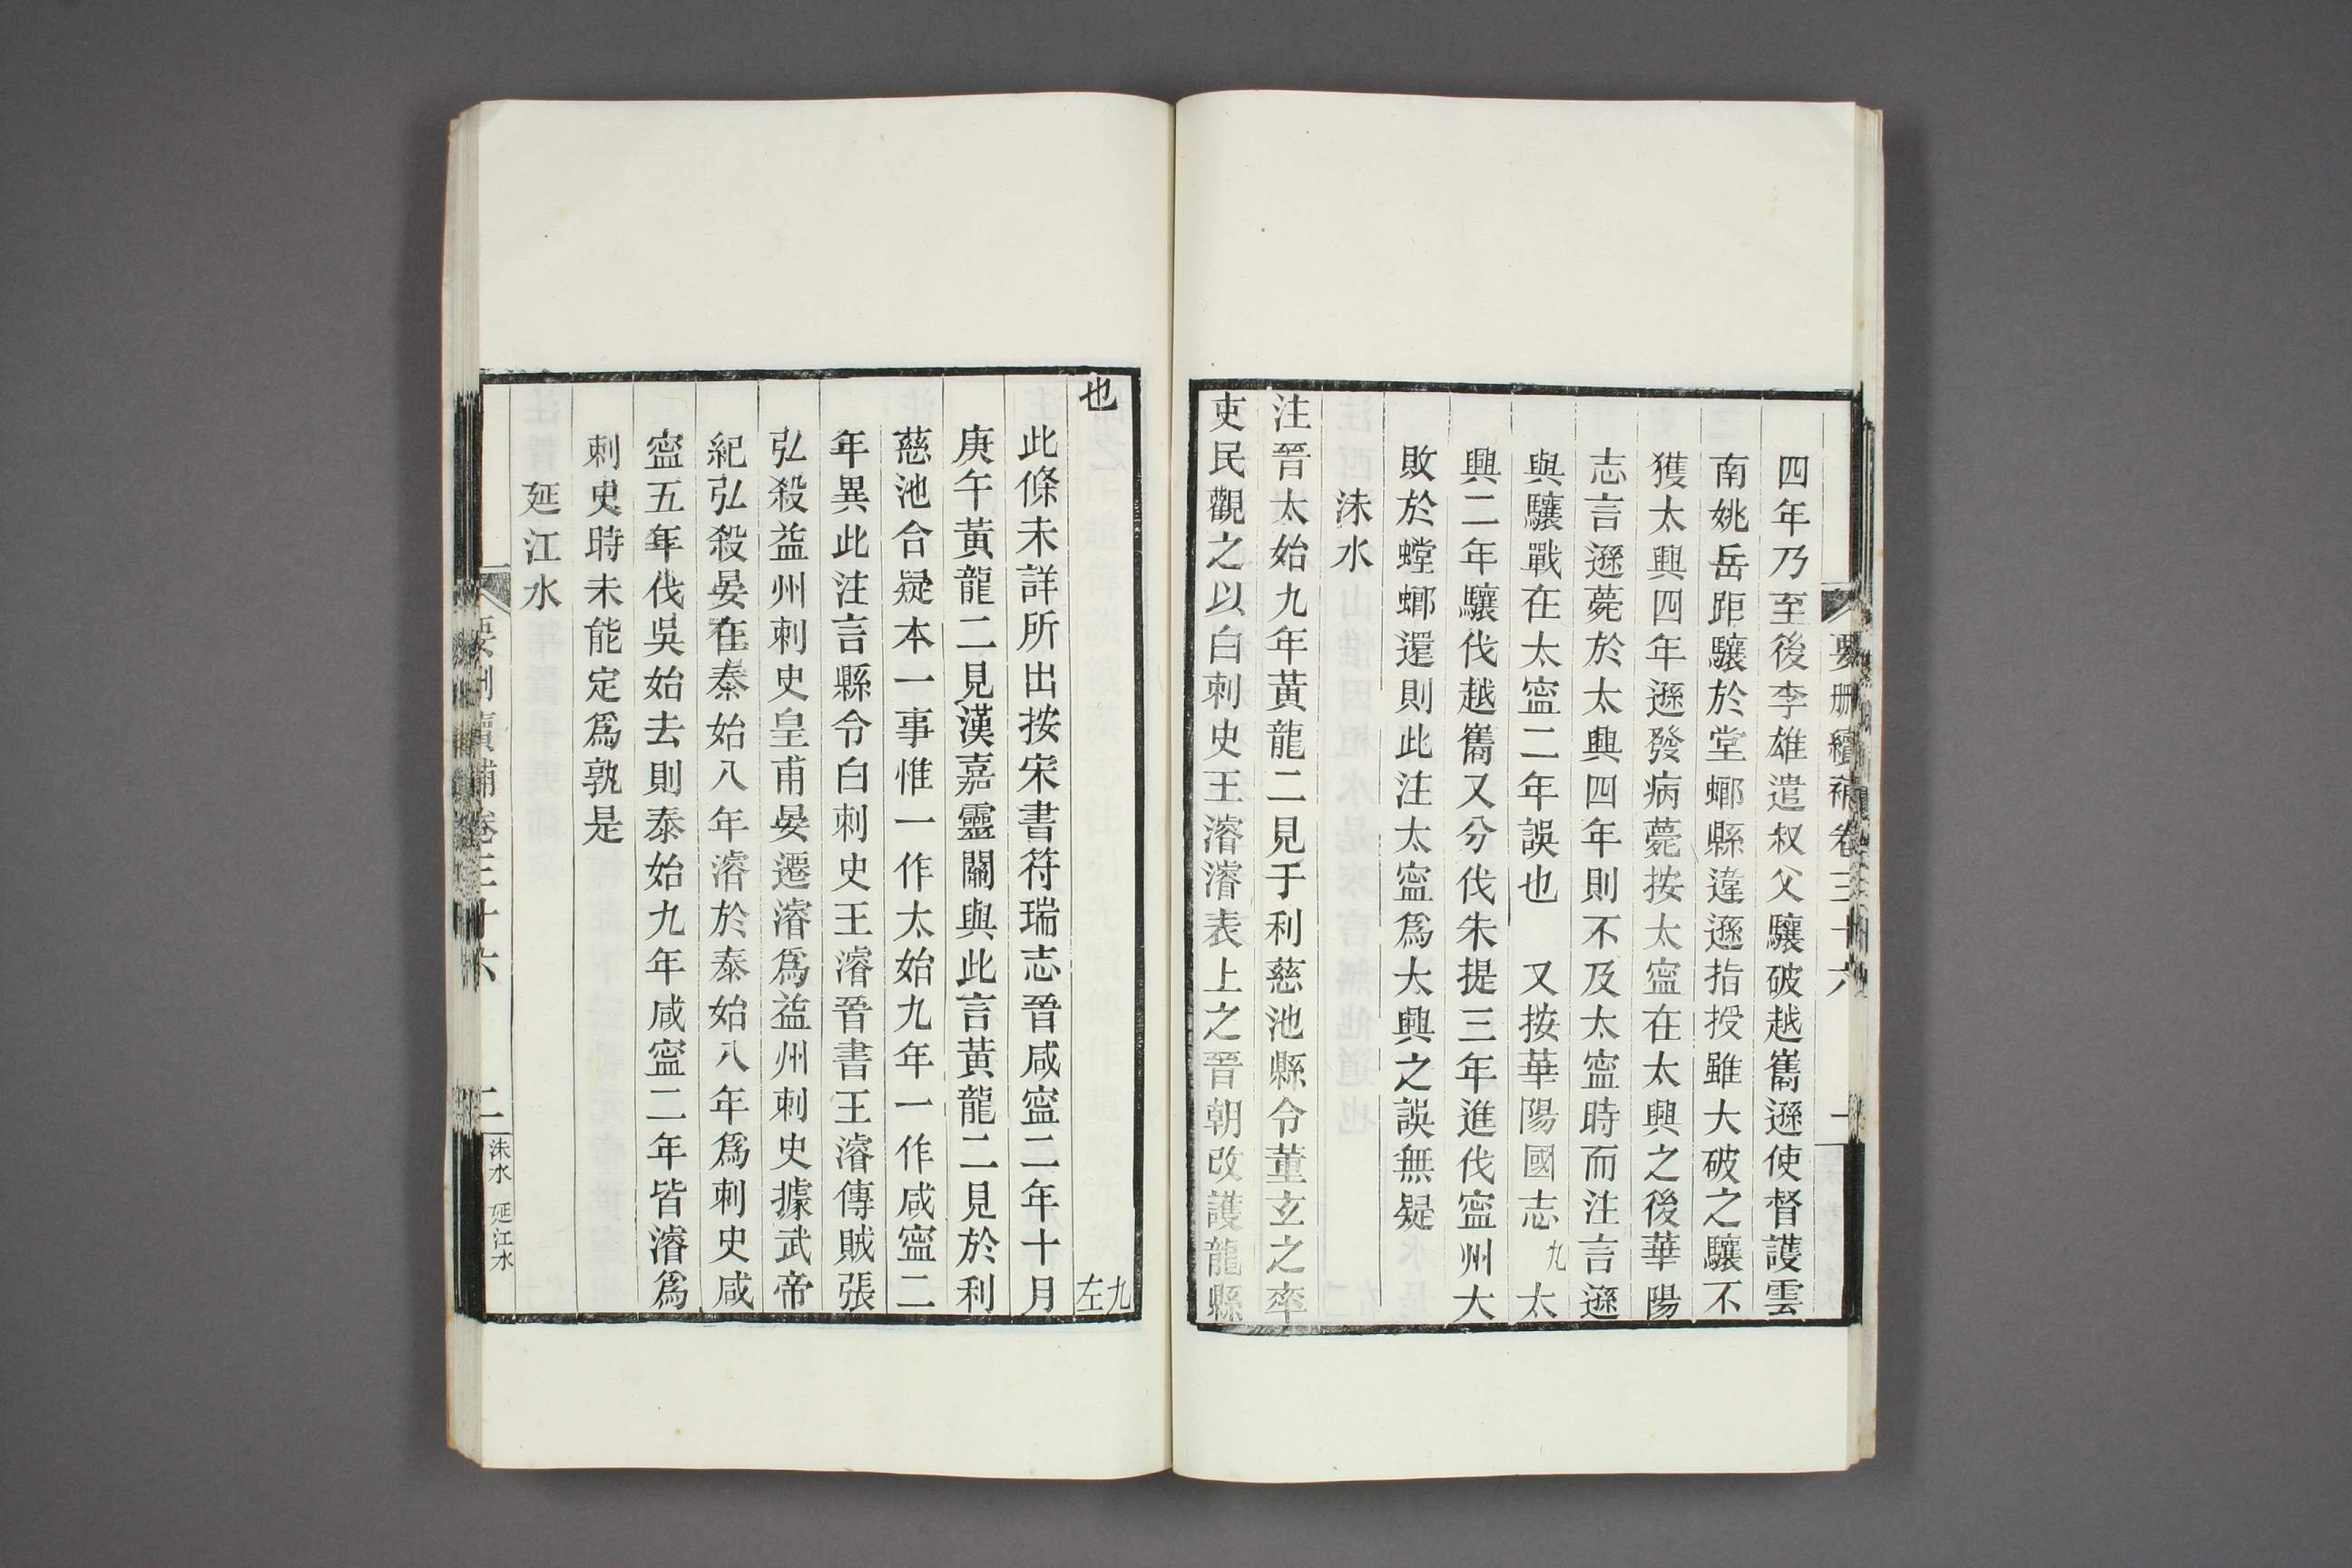 要刪續補卷三十六 一
四年乃至後李雄遣叔父驤破越巂遜使督護雲
南姚岳距驤於堂螂縣違遜指授雖大破之驤不
獲太興四年遜發病薨按太寍在太興之後華陽
志言遜薨於太興四年則不及太寍時而注言遜
與驤戰在太寍二年誤也 又按華陽國志九太
興二年驤伐越巂又分伐朱提三年進伐寍州大
敗於螳螂還則此注太寍爲大興之誤無疑
沬水
注晉太始九年黃龍二見于利慈池縣令董玄之率
吏民觀之以白刺史王濬濬表上之晉朝改護龍縣
也 九左
此條未詳所出按宋書符瑞志晉咸寍二年十月
庚午黃龍二見漢嘉靈關與此言黃龍二見於利
慈池合疑本一事惟一作太始九年一作咸寍二
年異此注言縣令白刺史王濬晉書王濬傳賊張
弘殺益州刺史皇甫晏遷濬爲益州刺史據武帝
紀弘殺晏在秦始八年濬於泰始八年爲刺史咸
寍五年伐吳始去則泰始九年咸寍二年皆濬爲
刺史時未能定爲孰是
延江水
要刪續補卷三十六 二 沬水 延江水